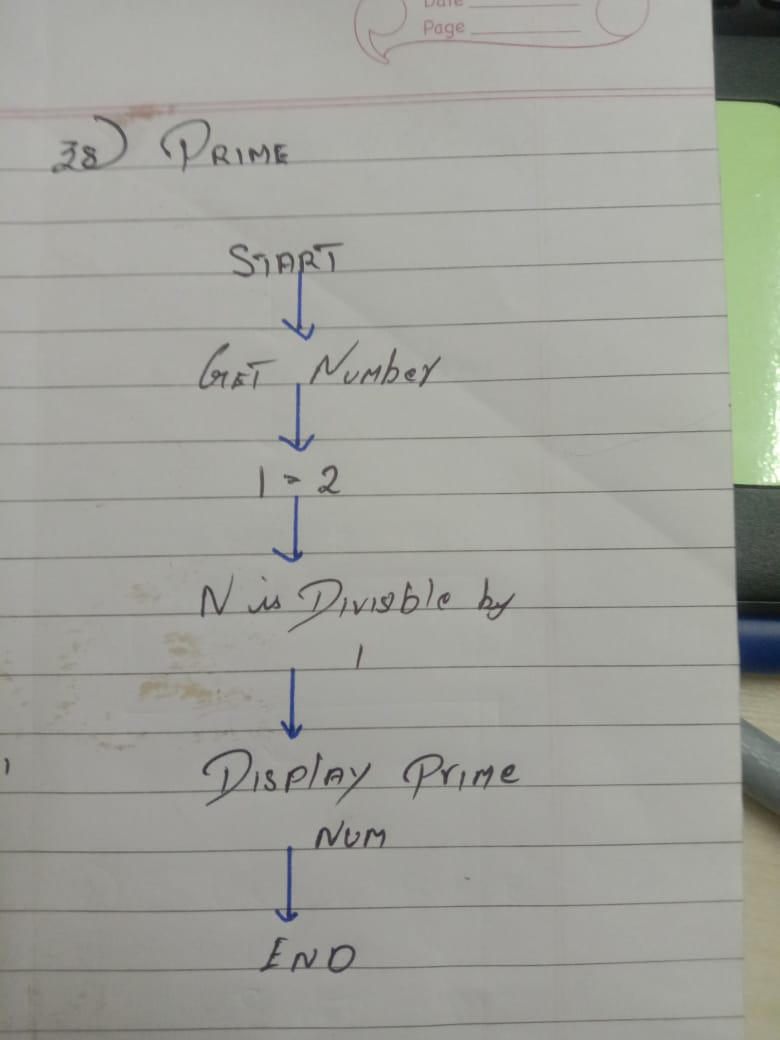 Date
Page
38) PRIME
START
GET Number
1 = 2
N is Divisble by
1
Display Prime
NUM
END